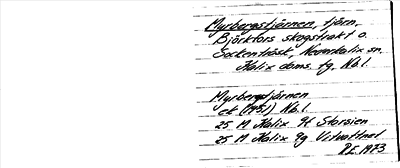 Myrbergstjärnen, tjärn,
Björkfors skogstrakt o.
Sockenträsk, Nederkalix sn,
Kalix doms. fg, Nb.l.
Myrbergstjärnen
ek (1951) Nb.l.
25 M Kalix 9f Storsien
25 M Kalix 9g Vitvattnet
P.E. 1973